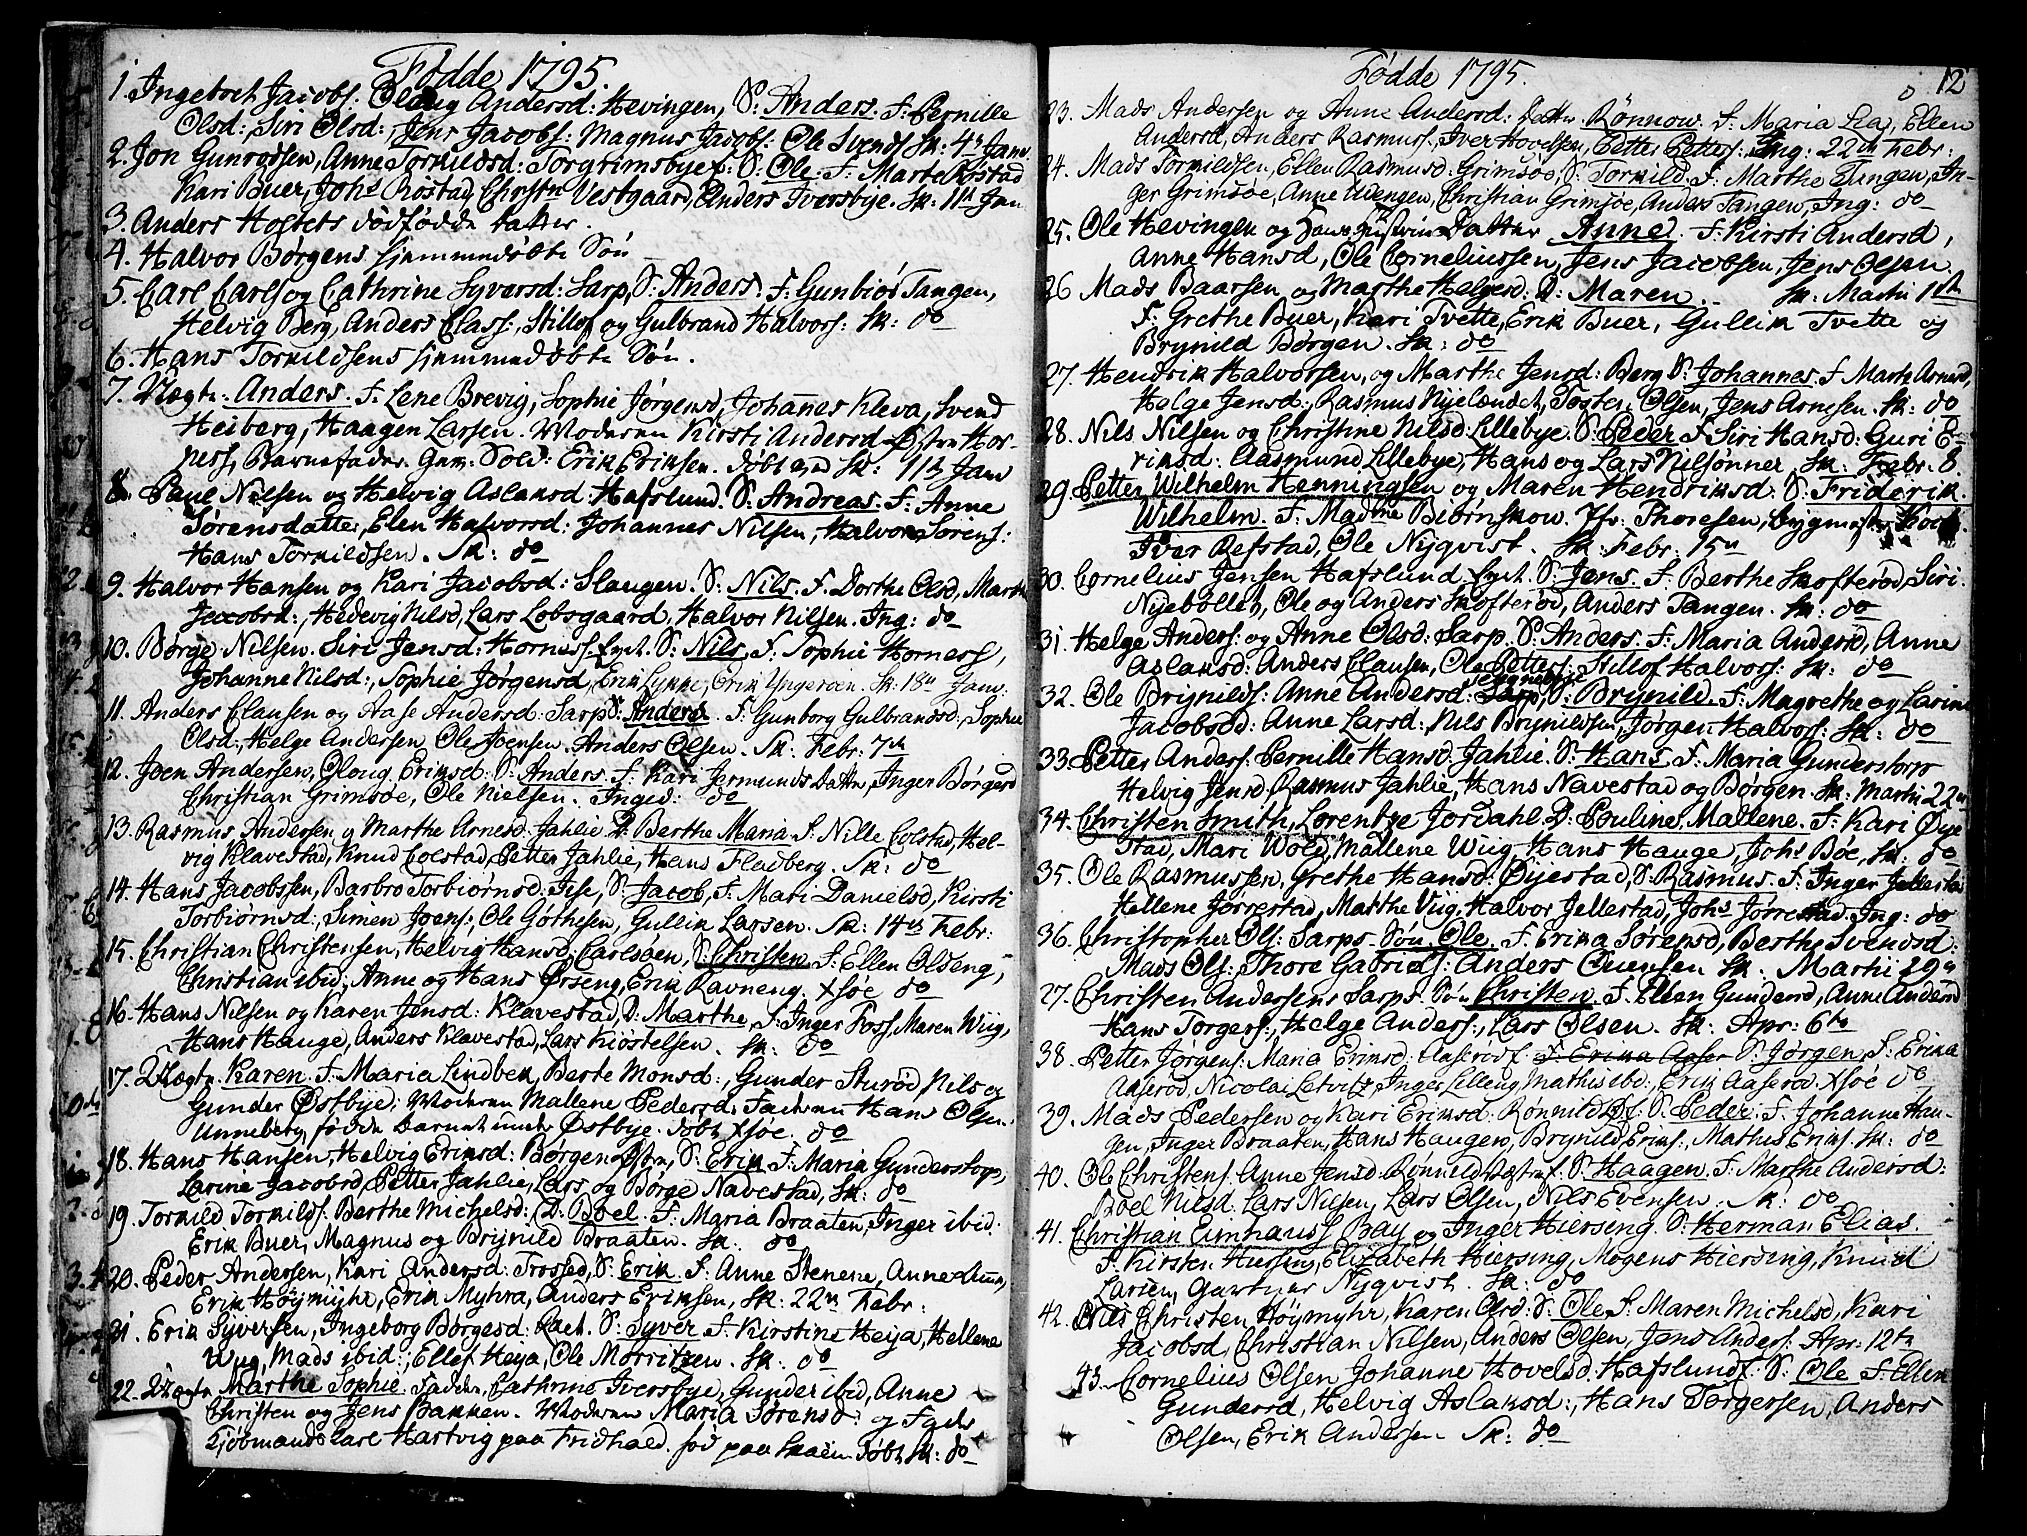 Fødde 1795.
1. Ingebret Jacobs: Oloug Andersd: Hevingen, S: Anders. F. Pernille
Olsd: Siri Olsd:, Jens Jacobs: Magnus Jacobs: Ole Svends Sk: 4de Janv.
2. Jon Gunrodsen, Anne Torkildsd: Torgrimsbyef. S: Ole. F. Marte Røstad
Kari Buer, Johs Røstad, Christn Vestgaard, Anders Iversbye. Sk: 11te Jan
3. Anders Holtets dødfødde Datter.
4. Halvor Børgens hjemmedøbte Søn
5. Carl Carls og Cathrine Syversd: Sarp, S: Anders. F. Gunbiør Tangen,
Helvig Berg, Anders Class:, Stillof og Gulbrand Halvors: Sk: do
6. Hans Torkildsens hjemmedøbte Søn.
7. Uægte. Anders. F. Lene Brevig, Sophie Jørgensd, Johannes Kleva, Svend
Heiberg, Haagen Larsen. Moderen Kirsti Andersd Østre Hor-
ness, Barnefader Gem: Sold: Erik Eriksen. døbt Sk: 11te Janv
8. Paul Nilsen og Helvig Aslaksd Hafslund. S: Andreas. F. Anne
Sørensdatter, Elen Halvorsd: Johannes Nilsen, Halvor Sørens:
Hans Torkildsen. Sk: do
9. Halvor Hansen og Kari Jacobsd: Slaugen. S: Nils. F. Dorthe Olsd, Marthe
Jacobsd:, Hedevig Nilsd, Lars Løbsgaard, Halvor Nilsen. Ing: do
10. Børge Nilsen. Siri Jensd: Horness. S: Nils. F. Sophie Horness,
Johanne Nilsd:, Sophie Jørgensd, Erik Lykke, Erik Ungeroen. Sk: 18de Janv:
11. Anders Clausen og Aase Andersd: Sarp S: Anders. F. Gunborg Gulbrandsd:, Sophie
Olsd:, Helge Andersen, Ole Joensen. Anders Olsen. Sk: Febr: 7de
12. Joen Andersen, Oloug Eriksd: S: Anders. F. Kari Jermunds Dattr, Inger Børgesd
Christian Grimsøe, Ole Nielsen. Inged: do
13. Rasmus Andersen og Marthe Arnesd: Jahlie D. Berthe Maria F. Nille Colstad, Hel-
vig Klavestad, Knud Colstad, Petter Jahlie, Hans Fladberg. Sk: do
14. Hans Jacobssen, Barbro Torbiørnsd: Ise, S: Jacob, F. Mari Danielsd, Kirsti
Torbiørnsd:, Simen Joens:, Ole Gøthesen, Gullik Larsen. Sk: 14de Febr:
15. Christian Christensen, Helvig Hansd, Carlsøen, S: Christen F. Ellen Olseng,
Christian ibid, Anne og Hans Ørseng, Erik Ravneng. Xsøe do
16. Hans Nilsen og Karen Jensd: Klavestad, D: Marthe, F. Inger Foss, Maren Wiig,
Hans Hauge, Anders Klavestad, Lars Kiøstelsen. Sk: do
17. Uægte. Karen F. Maria Lindbek, Berte Monsd:, Gunder Sturød, Nils og
Gunder Østbye; Moderen Mallene Pedersd: Faderen Hans Olsen
Unneberg, fødde Barnet under Østbye. døbt Xsøe. do
18. Hans Hansen, Helvig Eriksd: Børgen Østre, S: Erik F. Maria Gunderstorp,
Larine Jacobsd, Petter Jahlie, Lars og Børge Navestad, Sk: do
19. Torkild Torkilds: Berthe Michelsd: D: Boel. F. Maria Braaten, Inger ibid:
Erik Buer, Magnus og Brynild Braaten. Sk: do
20. Peder Andersen, Kari Andersd: Trosed, S: Erik. F. Anne Stenene, Anne
Erik Høymyhr, Erik Myhra, Anders Eriksen, Sk: 22de Febr:
21. Erik Syversen, Ingeborg Børgesd: S: Syver F. Kirstine Heija, Hellene
Wiig, Mads ibid:, Ellef Heija, Ole Morritzen. Sk: do
22. Uægte Marthe Sophie. Fadder, Cathrine Iversbye, Gunder ibid, Anne
Christen og Jens Bakken. Moderen Maria Sørensd: og Fader
Kjøbmand Carl Hartvig paa Fridhald. fød paa Skaien Døbt Sk: do
Fødde 1795. 12
23. Mads Andersen og Anne Andersd: Datter Rønnow. F. Maria Lea, Ellen
Andersd, Anders Rasmuss:, Iver Hovelsen, Petter Petters: Ing: 22de Febr:
24. Mads Torkildsen, Ellen Rasmusd: Grimsøe, S: Torkild. F. Marthe Tangen, In-
ger Grimsøe, Anne Auengen, Christian Grimsøe, Anders Tangen, Ing: do
25. Ole Hevingen og Hans Datter Anne. F. Kirsti Andersd,
Anne Hansd, Ole Corneliussen, Jens Jacobsen, Jens Olsen
26 Mads Baarsen og Marthe Helgesd: D: Maren. Sk: Martii 1ste
F. Grethe Buer, Kari Tvette, Erik Buer, Gullik Tvette og
Brynild Børgen. Sk: do
27. Hendrik Halvorsen, og Marthe Jensd: Berg S: Johannes. F. Marte Arnesd,
Helge Jensd:, Rasmus Nyelændet, Toster Olsen, Jens Arnesen. Sk: do
28. Nils Nilsen og Christine Nilsd: Lillebye. S: Peder F. Siri Hansd: Guri E-
riksd: Aasmund Lillebye, Hans og Lars Nilsønner, Sk: Febr. 8.
29 Petter Wilhelm Henningsen og Maren Hendriksd. S: Friderik
Wilhelm. F. Madme Biørnskow. Jfr. Thoresen, Bygmester Koch.
Iver Refstad, Ole Nyqvist. Sk: Febr: 15de
30. Cornelius Jensen Hafslund. S: Jens. F. Berthe Skofterød, Siri
Nyebøllet, Ole og Anders Skofterød, Anders Tangen. Sk: do
31. Helge Anders: og Anne Olsd: Sarp. S: Anders. F. Maria Andersd, Anne
Aslaksd: Anders Clausen, Ole Petters: Stillof Halvors: Sk: do
32. Ole Brynilds: Anne Andersd: Sarp, S: Brynild. F. Magrethe og Larine
Jacobsd: Anne Larsd: Nils Brynildsen, Jørgen Halvors: Sk: do
33. Petter Anders: Pernille Hansd. Jahlie. S: Hans. F. Maria Gunderstorp
Helvig Jensd, Rasmus Jahlie, Hans Navestad og Børgen. Sk: Martii 22de
34. Christen Smith, Lorentze Jordahl D: Pouline Mallene. F. Kari Øye
stad, Mari Wold, Mallene Wiig, Hans Hauge, Johs Bøe, Sk: do
35. Ole Rasmussen. Grethe Hansd: Øyestad, S: Rasmus. F. Inger Jellestad
Hellene Jørrestad, Marthe Viig, Halvor Jellestad, Johs Jørrestad. Ing: do
36. Christopher Ols: Sarps. Søn Ole. F. Erika Sørensd, Berthe Svendsd:
Mads Ols: Thore Gabriels: Anders Ouensen Sk. Martii 29de
27. Christen Andersens Sarps. Søn Christen. F. Ellen Gundersd, Anne Andersd
Hans Torgers:, Helge Anders:, Lars Olsen. Sk. Apr: 6te
38. Petter Jørgens: Maria Eriksd: Aaserødf. F. Erika Aaser S: Jørgen, F. Erika
Aaserød, Nicolai Letvitz, Inger Lilleng, Mathis ibid:, Erik Aaserød. Xsøe do
39. Mads Pedersen og Kari Eriksd: Rønnild S: Peder. F. Johanne Hau-
gen, Inger Braaten, Hans Haugen, Brynild Eriks:, Mathis Eriks. Sk: do
40. Ole Christens: Anne Jensd. Rønneld S: Haagen. F. Marthe Andersd:
Boel Nilsd: Lars Nilsen, Lars Olsen, Nils Evensen. Sk: do
41. Christian Eunhaus Bay og Inger Hiersing. S: Herman Elias.
F. Kirsten Hiersing, Elizabeth Hiersing, Mogens Hiersing, Knud
Larsen, Gartner Nyqvist. Sk: do
42. Christen Høymyhr, Karen Olsd. S: Ole F. Maren Michelsd, Kari
Jacobsd, Christian Nilsen, Anders Olsen, Jens Anders: Apr: 12te
43. Cornelius Olsen Johanne Hovelsd. Hafslundf. S: Ole F. Ellen
Gundersd, Helvig Aslaksd:, Hans Torgersen, Anders
Olsen, Erik Andersen Sk: do